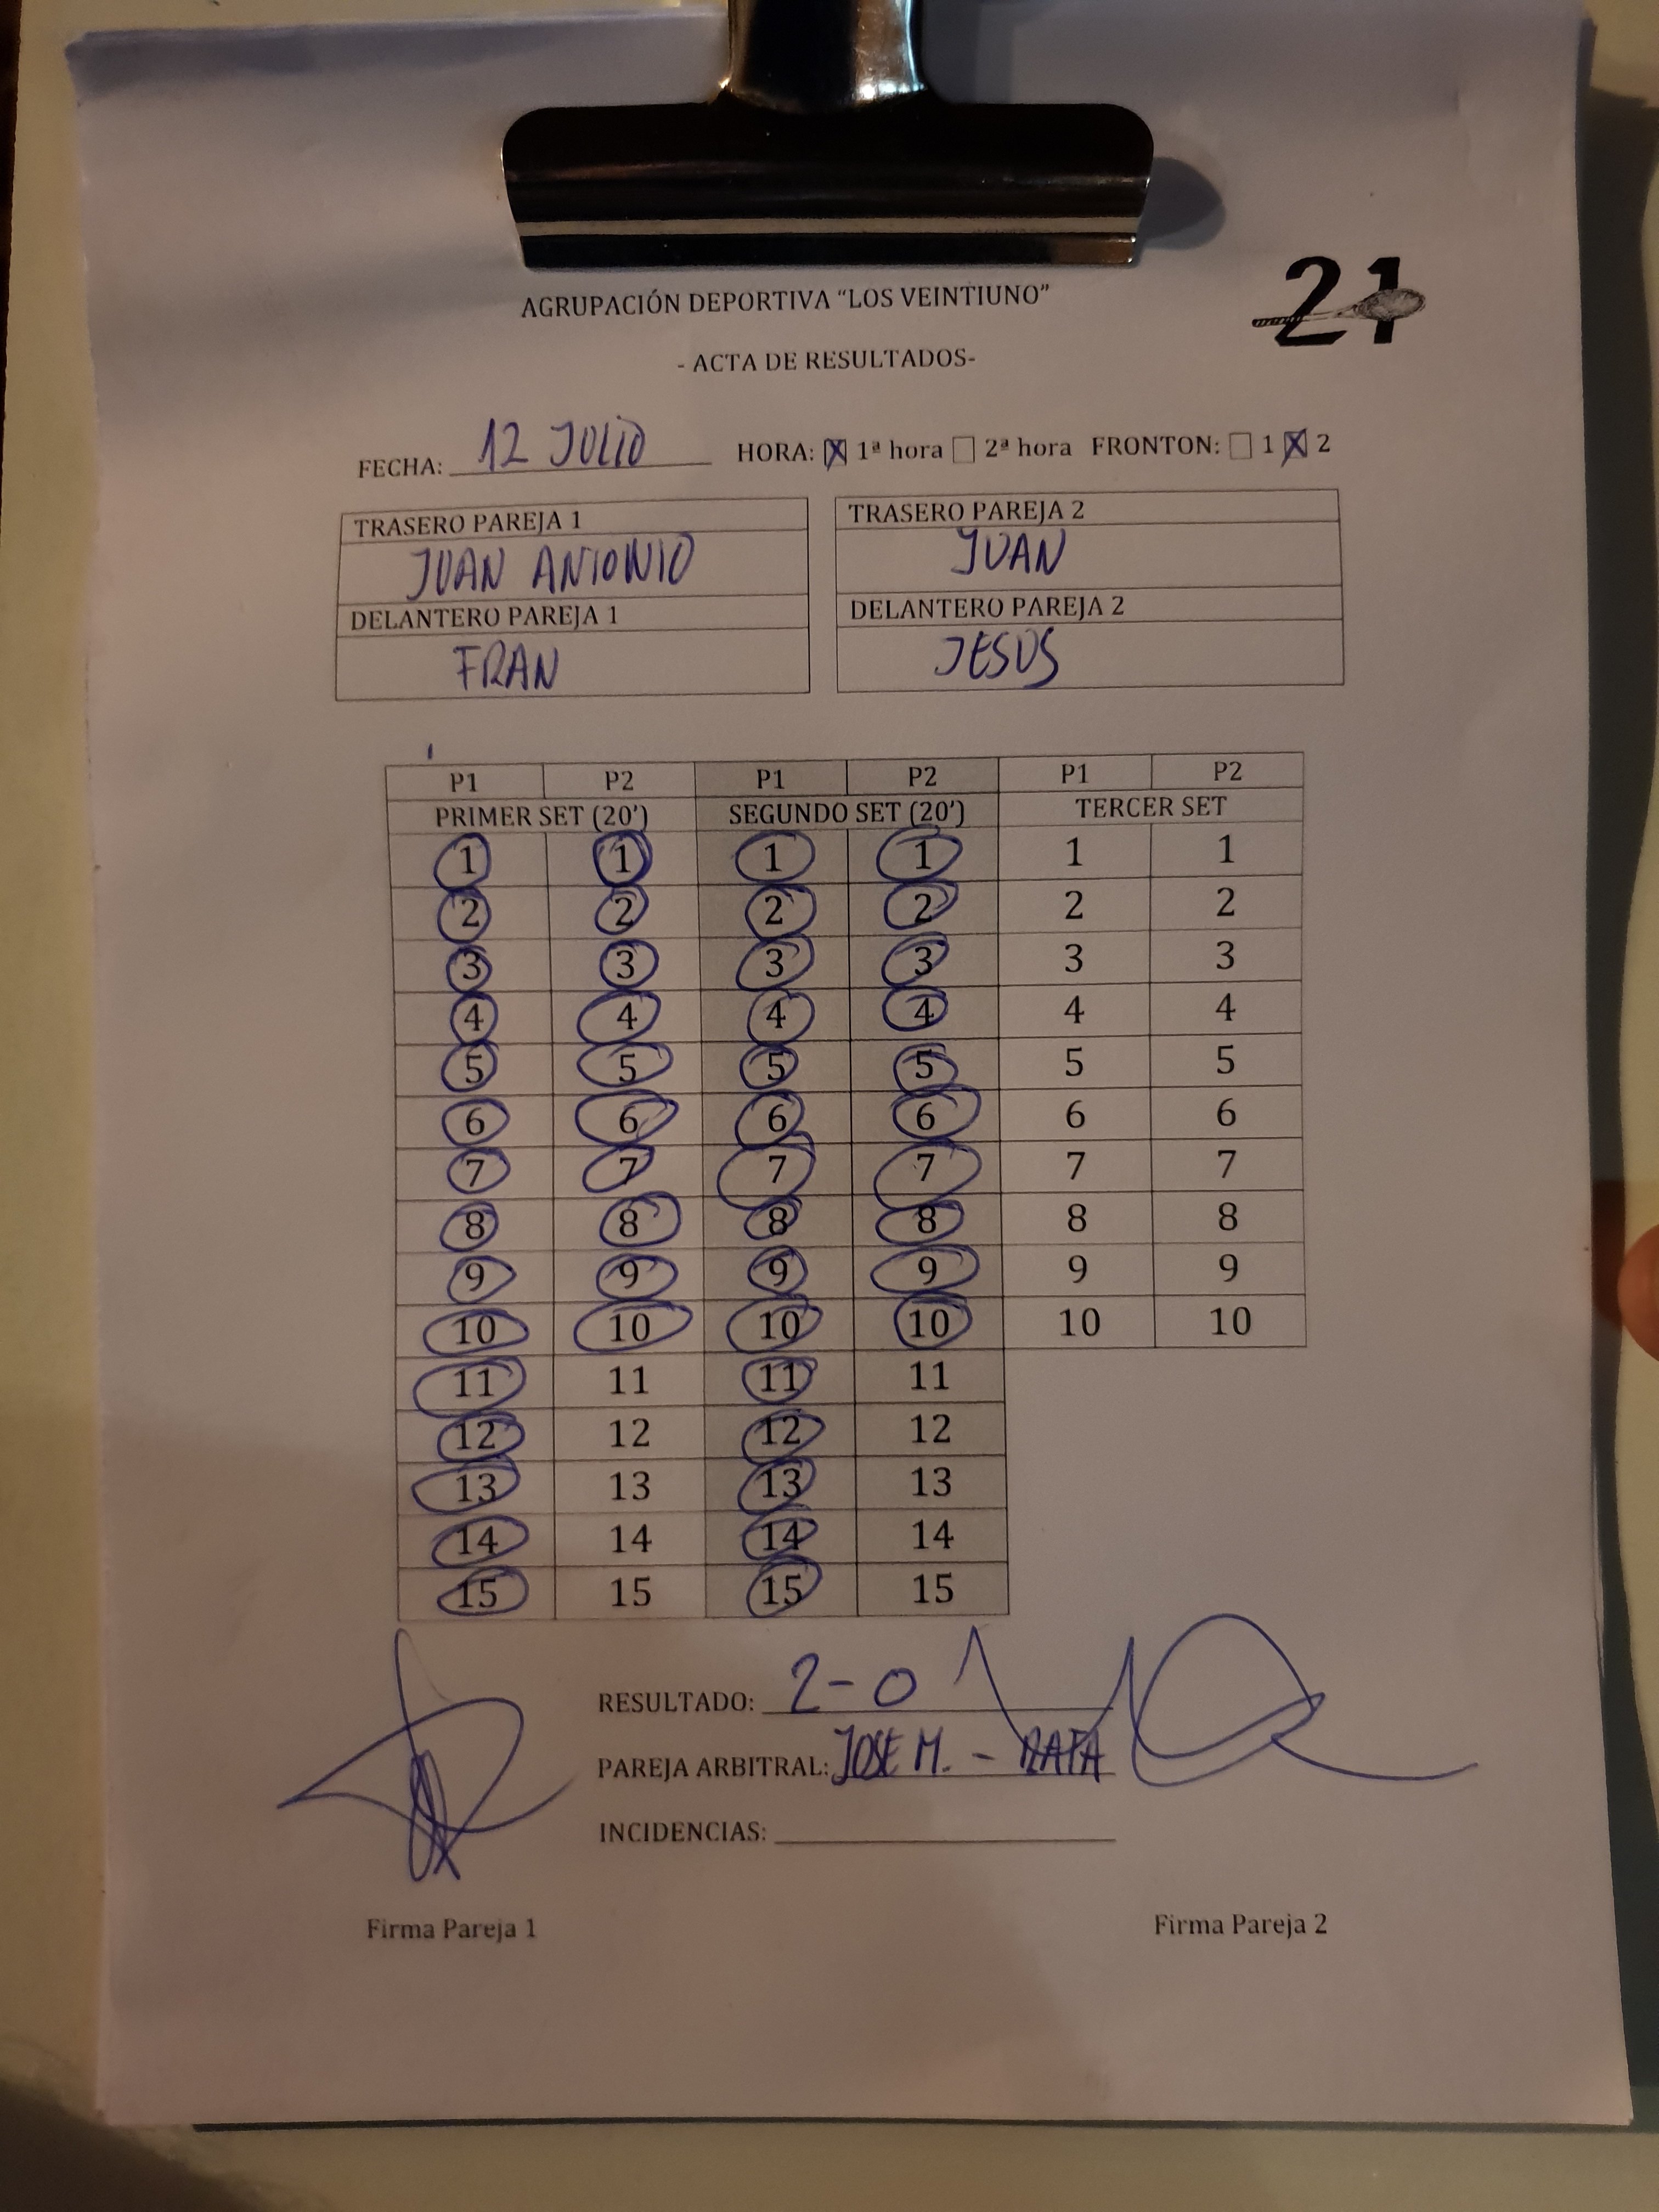 21
AGRUPACIÓN DEPORTIVA “LOS VEINTIUNO”
- ACTA DE RESULTADOS-
FECHA: 12 JULIO HORA: ☒ 1ª hora ☐ 2ª hora FRONTON: ☐ 1 ☒ 2
TRASERO PAREJA 1 TRASERO PAREJA 2
JUAN ANTONIO JUAN
DELANTERO PAREJA 1 DELANTERO PAREJA 2
FRAN JESUS
P1 P2 P1 P2 P1 P2
PRIMER SET (20’) SEGUNDO SET (20’) TERCER SET
1 1 1 1 1 1
2 2 2 2 2 2
3 3 3 3 3 3
4 4 4 4 4 4
5 5 5 5 5 5
6 6 6 6 6 6
7 7 7 7 7 7
8 8 8 8 8 8
9 9 9 9 9 9
10 10 10 10 10 10
11 11 11 11
12 12 12 12
13 13 13 13
14 14 14 14
15 15 15 15
RESULTADO: 2-0
PAREJA ARBITRAL: JOSE M. - RAFA
INCIDENCIAS:
Firma Pareja 1 Firma Pareja 2